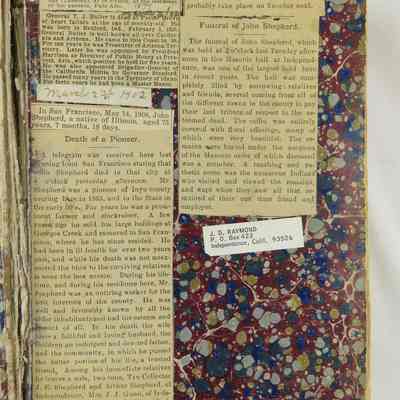 General T. J. Butler died at
of heart failure at the age of seventy-six. He
was born in Bedford, Ind., February 1, 1826.
General Butler is well known all over Califor-
nia and Arizona. He came to this Coast in 18
For six years he was Treasurer of Arizona Ter-
ritory. Later he was appointed by President
Harrison as Receiver of Public Money at Pres-
cott, Ariz., which position he held for five years.
He was also appointed Brigadier-General of
the California Militia by Governor
many years in the Territory of Idaho.
For forty years he had been a Master Mason.
March 24 1902
In San Francisco, May 14, 1908, John
Shepherd, a native of Illinois, aged 75
years, 7 months, 18 days.
Death of a Pioneer.
A telegram was received here last
evening from San Francisco stating that
John Shepherd died in that city at
o'clock yesterday afternoon. Mr.
Shepherd was a pioneer of Inyo county
coming here in 1863, and to the State in
the early 50's. For years he was a prom-
inent farmer and stockraiser. A few
years ago he sold his large holdings at
Georges Creek and removed to San Fran-
cisco, where he has since resided. He
had been in ill-health for over two years
past, and while his death was not unex-
pected the blow to the surviving relatives
is none the less severe. During his life-
time, and during his residence here, Mr.
Shepherd was an untiring worker for the
best interests of the county. He was
well and favorably known by all the
older inhabitants and had the esteem and
respect of all. In his death the wife
loses a faithful and loving husband, the
children an indulgent and devoted father,
and the community, in which he passed
the latter portion of his life, a trusted
friend. Among his immediate relatives
he leaves a wife, two sons, Tax Collector
J. E. Shepherd and Arthur Shepherd, of
Independence, Mrs. J. J. Gunn, of Inde-
probably take place on Tuesday next.
Funeral of John Shepherd.
The funeral of John Shepherd, which
was held at 2 o'clock last Tuesday after-
noon in the Masonic hall at Independ-
ence, was one of the largest held here
in recent years. The hall was com-
pletely filled by sorrowing relatives
and friends, several coming from all of
the different towns in the county to pay
their last tribute of respect to the es-
teemed dead. The coffin was entirely
covered with floral offerings, many of
which were very beautiful. The re-
mains were buried under the auspices
of the Masonic order of which deceased
was a member. A touching and pa-
thetic scene was the numerous Indians
who visited and viewed the remains,
and wept when they saw all that re-
mained of their one time friend and
employer.
J. D. RAYMOND
P. O. Box 422
Independence, Calif. 93526